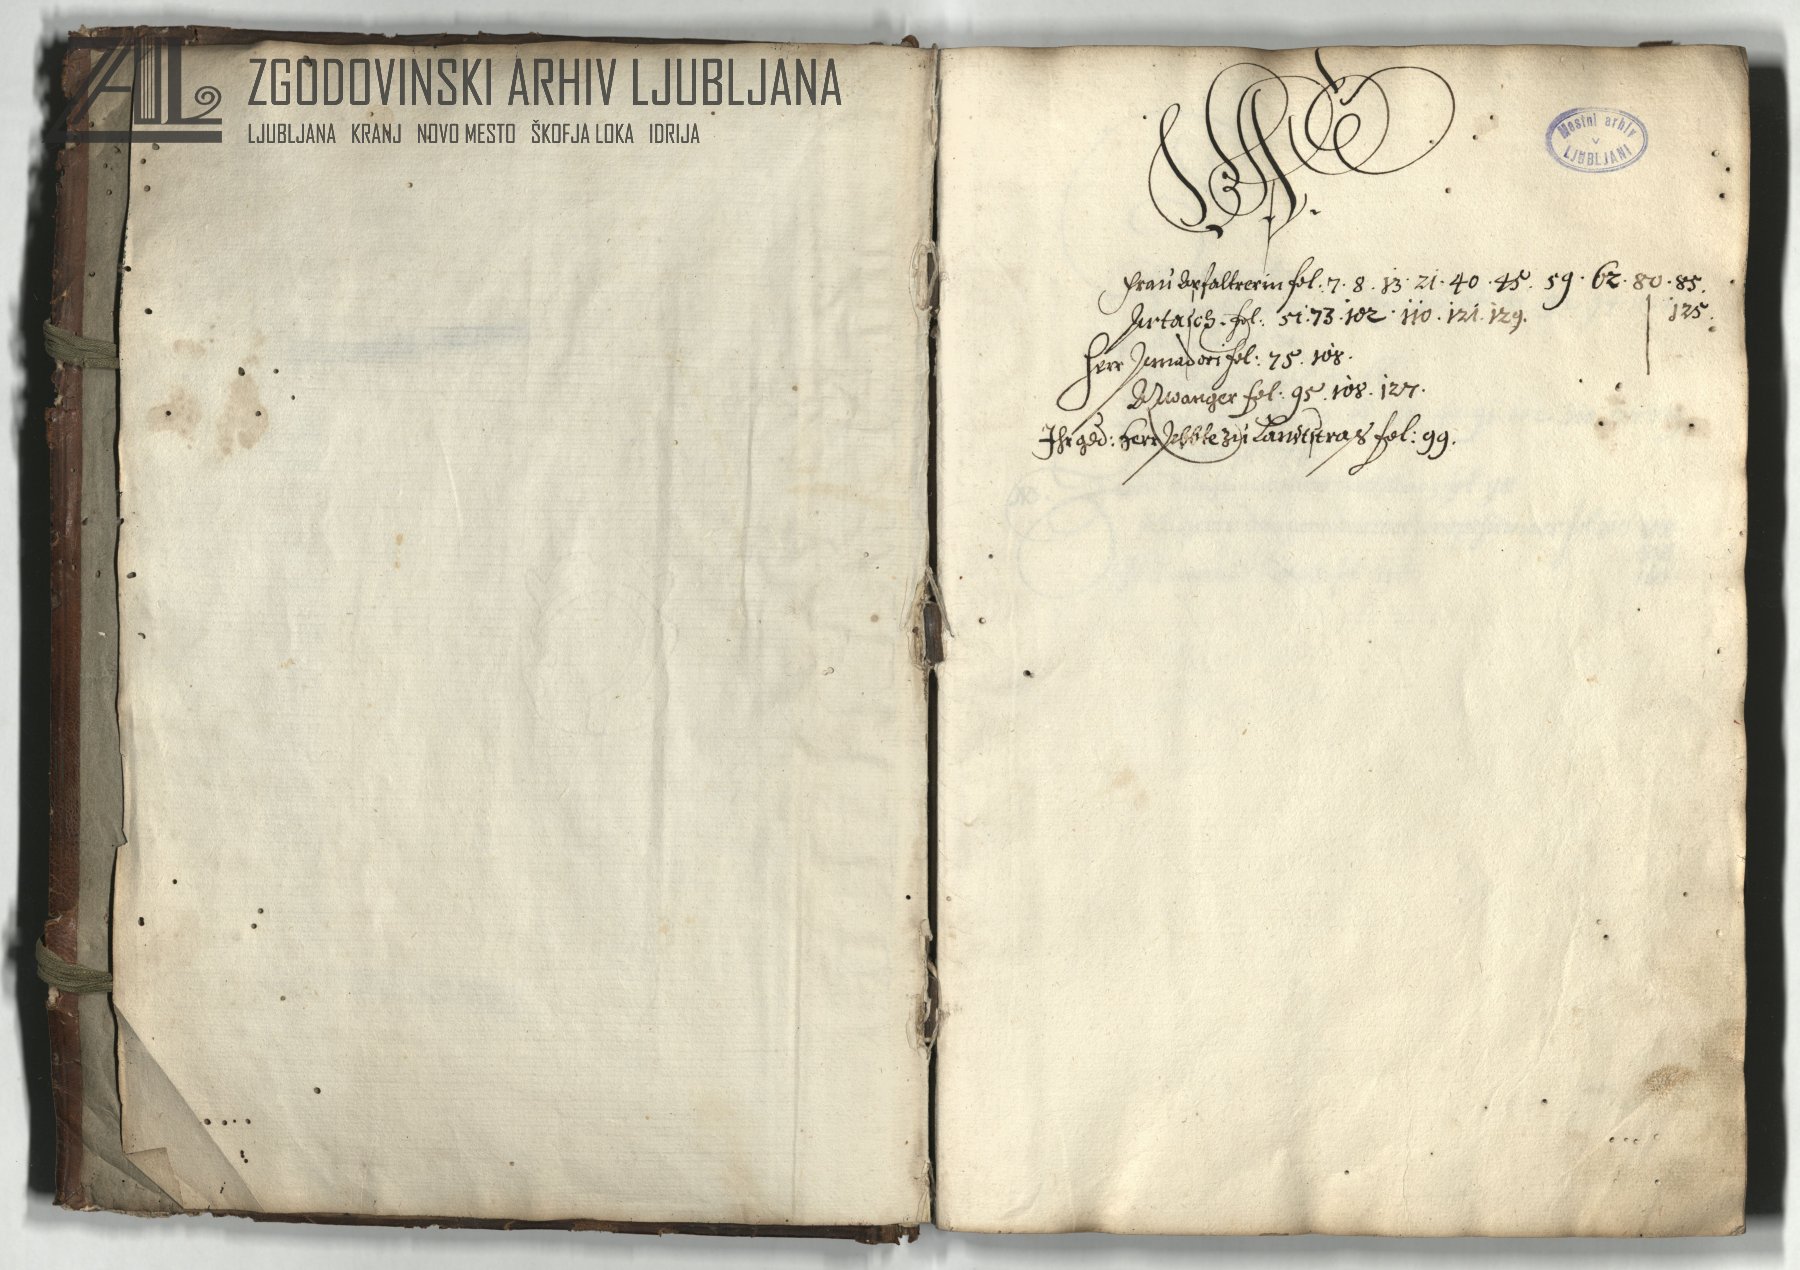 ZGODOVINSKI ARHIV LJUBLJANA
LJUBLJANA KRANJ NOVO MESTO ŠKOFJA LOKA IDRIJA
Mestni arhiv
v
LJUBLJANI
A
Frau Apfaltrerin fol: 7 · 8 · 13 · 21 · 40 · 45 · 59 · 62 · 80 · 85.
125.
fol: 51 · 73 · 102 · 110 · 121 · 129.
Herr Amadori fol: 75 · 108.
fol: 95 · 108 · 127.
Ihr gnd: Herr Abbte zu Landtstras fol: 99.